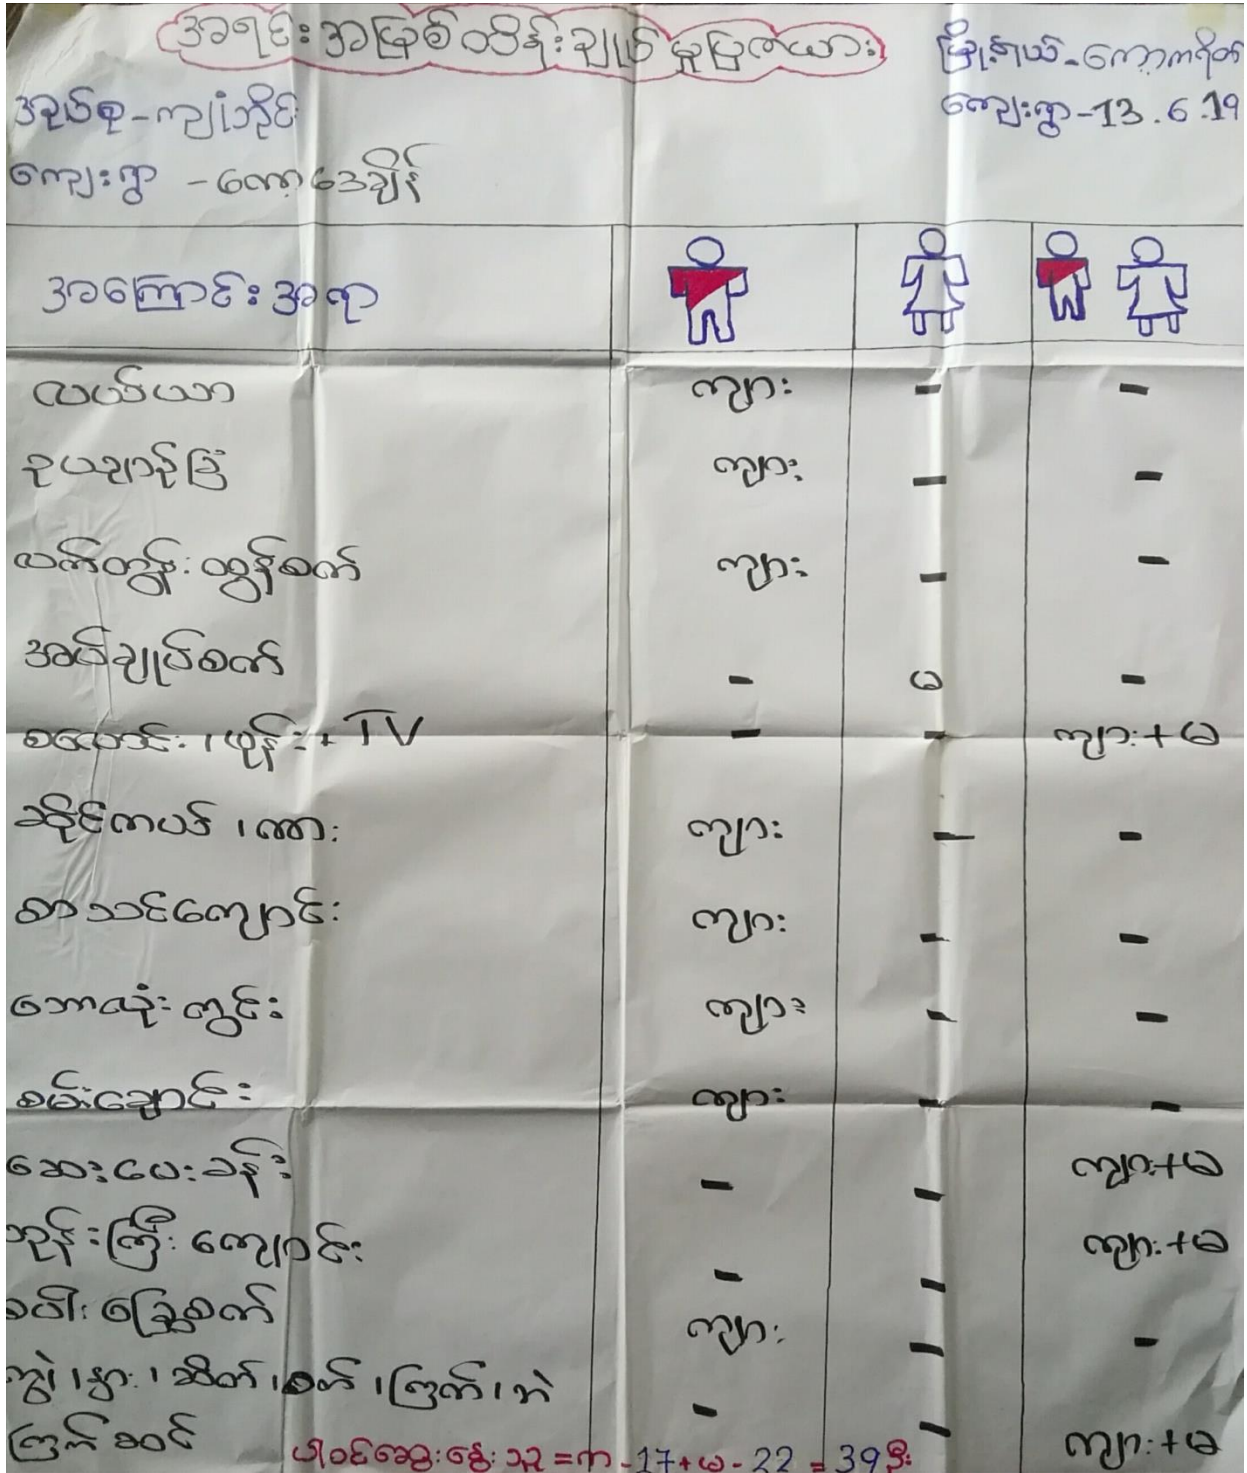 အရင်းအမြစ်ထိန်းချုပ်မှုပြဇယား
မြို့နယ်-ကော့ကရိတ်
အုပ်စု-ကျုံဘိုင်
ကျေးရွာ-13.6.19
ကျေးရွာ -ကော့ဒေချိန်
အကြောင်းအရာ
လယ်ယာ ကျား - -
ဥယျာဉ်ခြံ ကျား - -
လက်တွန်းထွန်စက် ကျား - -
အပ်ချုပ်စက် - မ -
စလောင်း၊ ဖုန်း + TV - - ကျား+မ
ဆိုင်ကယ်၊ ကား ကျား - -
စာသင်ကျောင်း ကျား - -
ဘောလုံးကွင်း ကျား - -
စမ်းချောင်း ကျား - -
ဆေးပေးခန်း - - ကျား+မ
ဘုန်းကြီးကျောင်း - - ကျား+မ
စပါးခြွေစက် ကျား - -
ကျွဲ၊ နွား၊ ဆိတ်၊ ဝက်၊ ကြက်၊ ဘဲ - -
ကြက်ဆင် ကျား+မ
ပါဝင်ဆွေးနွေးသူ = ကျ-17+မ-22 = 39 ဦး